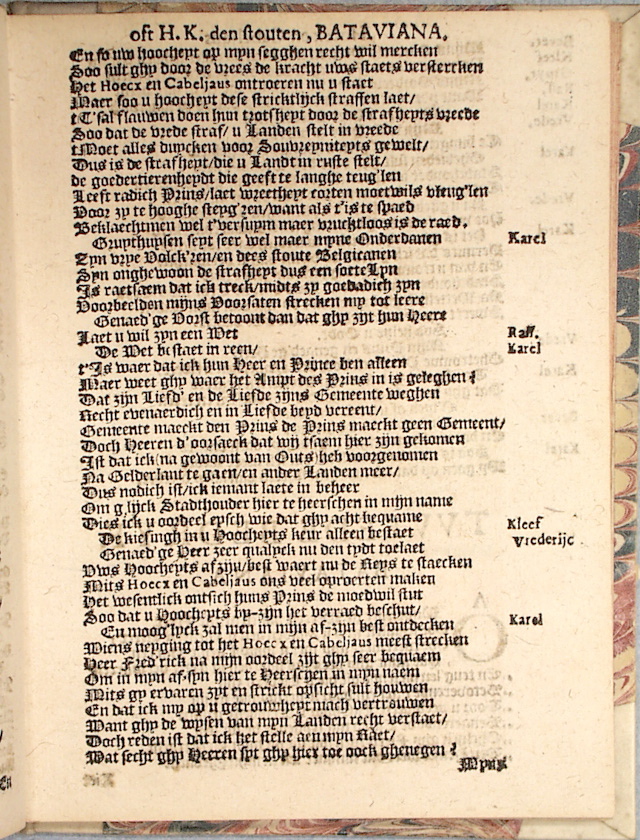 oft H. K. den stouten, BATAVIANA.
En so uw hoocheyt op mijn segghen recht wil mercken
Soo sult ghy door de vrees de kracht uws staets verstercken
Het Hoecx en Cabeljaus ontroeren nu u staet
Maer soo u hoocheyt dese stricktlijck straffen laet/
t'Tsal flauwen doen hun trotsheyt door de strafheyts vreede
Soo dat de vrede straf/ u Landen stelt in vreede
tMoet alles duycken voor Souvreyniteyts gewelt/
Dus is de strafheyt/die u Landt in ruste stelt/
de goedertierenheydt die geeft te langhe teug'len
Leeft radich Prins/laet wreetheyt corten moetwils vleug'len
Voor zy te hooghe steyg'ren/want als t'is te spaed
Beklaechtmen wel t'versuym maer vruchtloos is de raed.
Gruythuysen seyt seer wel maer myne Onderdanen Karel
Zyn vrye Volck'ren/en dees stoute Belgicanen
Syn onghewoon de strafheyt dus een sotteLyn
Is raetsaem dat ick treck/midts zy goedadich zyn
Voorbeelden mijns Voorsaten strecken my tot leere
Genaed'ge Vorst betoont dan dat ghy zijt hun Heere
Laet u wil zyn een Wet Raff.
De Wet bestaet in reen/ Karel
t'Is waer dat ick hun Heer en Prince ben alleen
Maer weet ghy waer het Ampt des Prins in is geleghen?
Dat zijn Liefd' en de Liefde zijns Gemeente weghen
Recht evenaerdich en in Liefde beyd vereent/
Gemeente maeckt den Prins de Prins maeckt geen Gemeent/
Doch Heeren d'oorsaeck dat wij tsaem hier zijn gekomen
Ist dat ick(na gewoont van Outs)heb voorgenomen
Na Gelderlant te gaen/en ander Landen meer/
Dus nodich ist/ick iemant laete in beheer
Om g'lijck Stadthouder hier te heerschen in mijn name
Dies ick u oordeel eysch wie dat ghy acht bequame
De kiesingh in u Hoocheyts keur alleen bestaet Kleef
Genaed'ge Heer zeer qualyck nu den tydt toelaet Vrederijc
Uws Hoocheyts af zijn/best waert nu de Reys te staecken
Mits Hoecx en Cabeljaus ons veel oproerten maken
Het wesentlick ontsich huns Prins de moedwil stut
Soo dat u Hoocheyts by-zijn het verraed beschut/
En moog'lyck zal men in mijn af-zijn best ontdecken Karel
Wiens neyging tot het Hoecx en Cabeljaus meest strecken
Heer Fred'rick na mijn oordeel zijt ghy seer bequaem
Om in myn af-syn hier te Heerschen in myn naem
Mits gy ervaren zyt en strickt opsicht sult houwen
En dat ick my op u getrouwheyt mach vertrouwen
Want ghy de wysen van myn Landen recht verstaet/
Doch reden ist dat ick het stelle aen myn Raet/
Wat secht ghy Heeren syt ghy hier toe oock ghenegen?